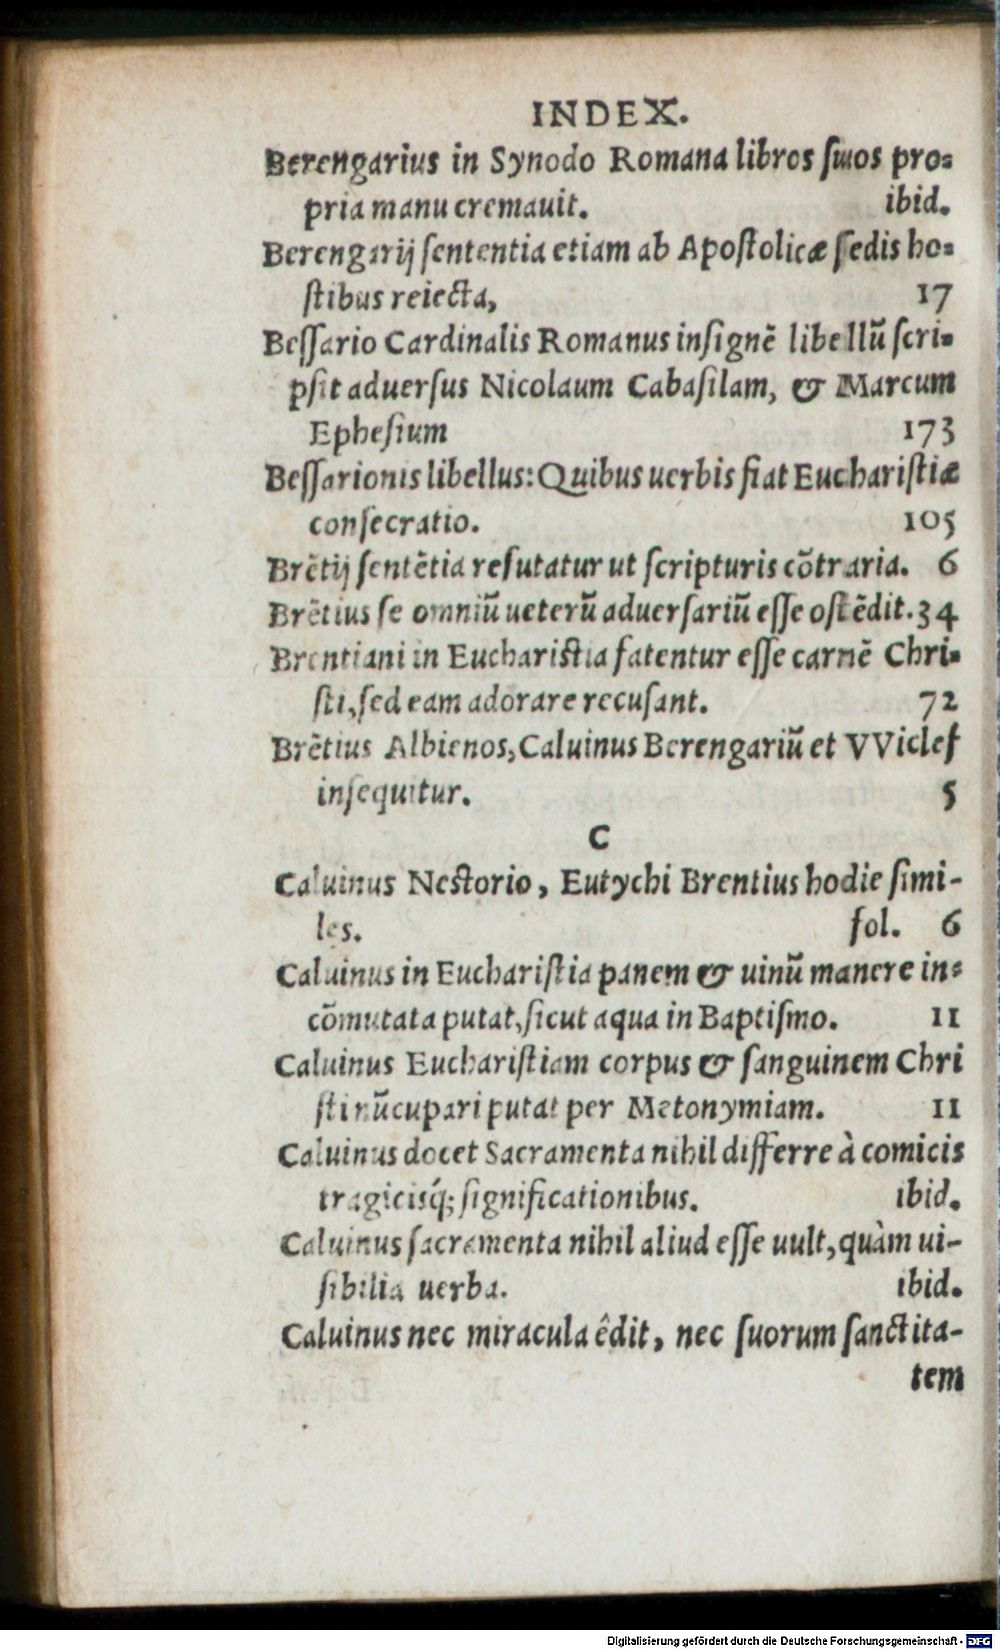 INDEX.
Berengarius in Synodo Romana libros ſuos pro-
pria manu cremauit. ibid.
Berengarij ſententia etiam ab Apoſtolicæ ſedis ho-
ſtibus reiecta, 17
Beſſario Cardinalis Romanus inſignē libellū ſcri-
pſit aduerſus Nicolaum Cabaſilam, & Marcum
Epheſium 173
Beſſarionis libellus: Quibus uerbis fiat Euchariſtiæ
conſecratio. 105
Brētij ſentētia refutatur ut ſcripturis cōtraria. 6
Brētius ſe omniū ueterū aduerſariū eſſe oſtēdit. 34
Brentiani in Euchariſtia fatentur eſſe carnē Chri-
ſti, ſed eam adorare recuſant. 72
Brētius Albienos, Caluinus Berengariū et VViclef
inſequitur. 5
C
Caluinus Neſtorio, Eutychi Brentius hodie ſimi-
les. fol. 6
Caluinus in Euchariſtia panem & uinū manere in-
cōmutata putat, ſicut aqua in Baptiſmo. 11
Caluinus Euchariſtiam corpus & ſanguinem Chri
ſti nūcupari putat per Metonymiam. 11
Caluinus docet Sacramenta nihil differre à comicis
tragicisq́; ſignificationibus. ibid.
Caluinus ſacramenta nihil aliud eſſe uult, quàm ui-
ſibilia uerba. ibid.
Caluinus nec miracula êdit, nec ſuorum ſanctita-
tem
Digitalisierung gefördert durch die Deutsche Forschungsgemeinschaft - DFG